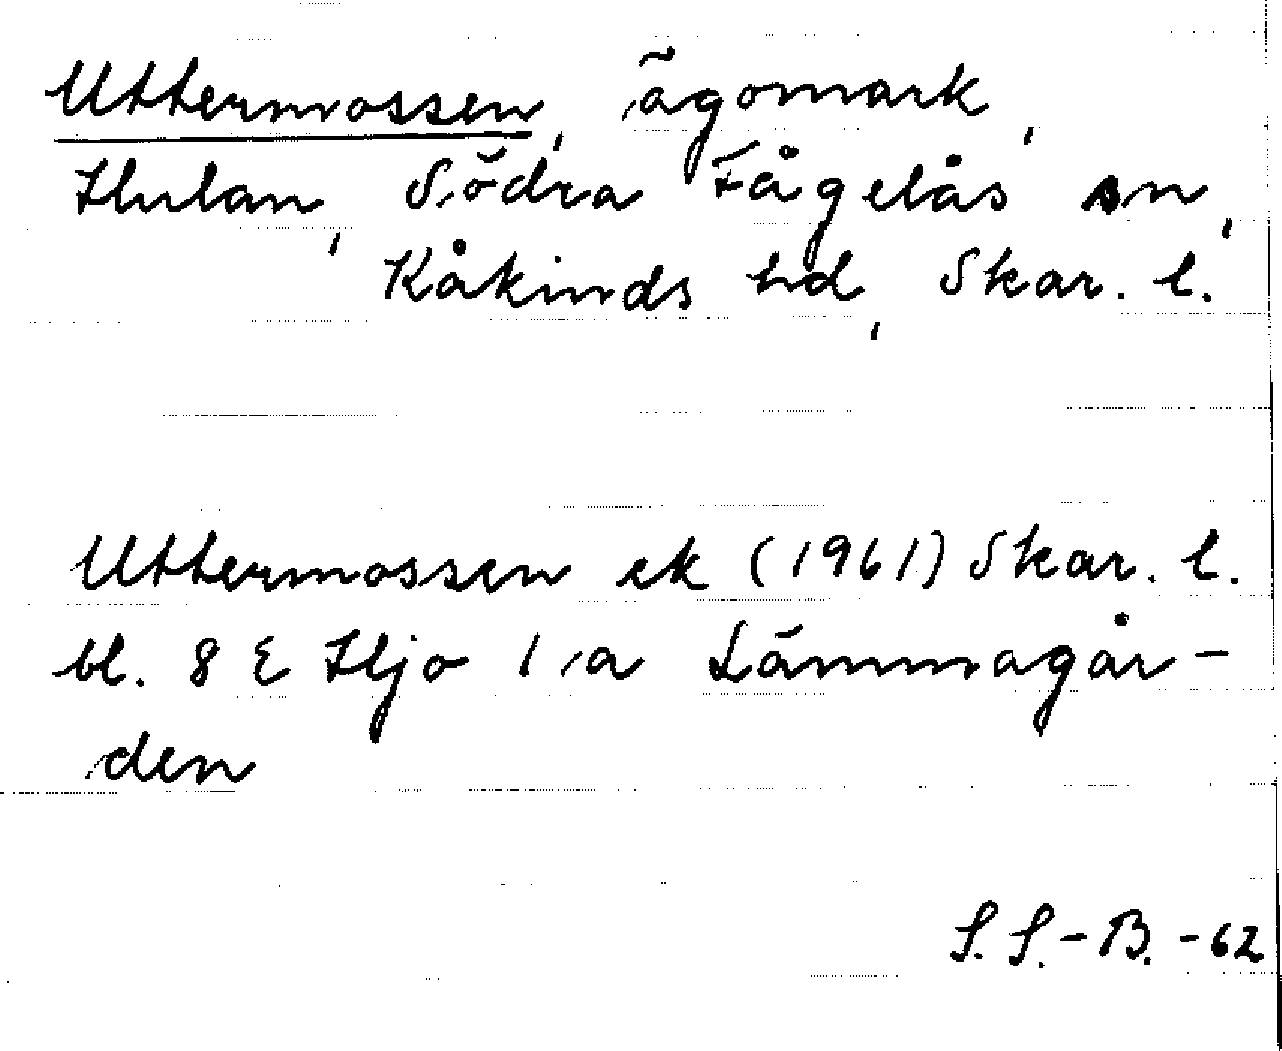 Uttermossen, ägomark,
Hulan, Södra Fågelås sn,
Kåkinds hd, Skar. l.
Uttermossen ek (1961) Skar. l.
bl. 8 E Hjo 1 a Lämmagår-
den
S. S.-B. -62